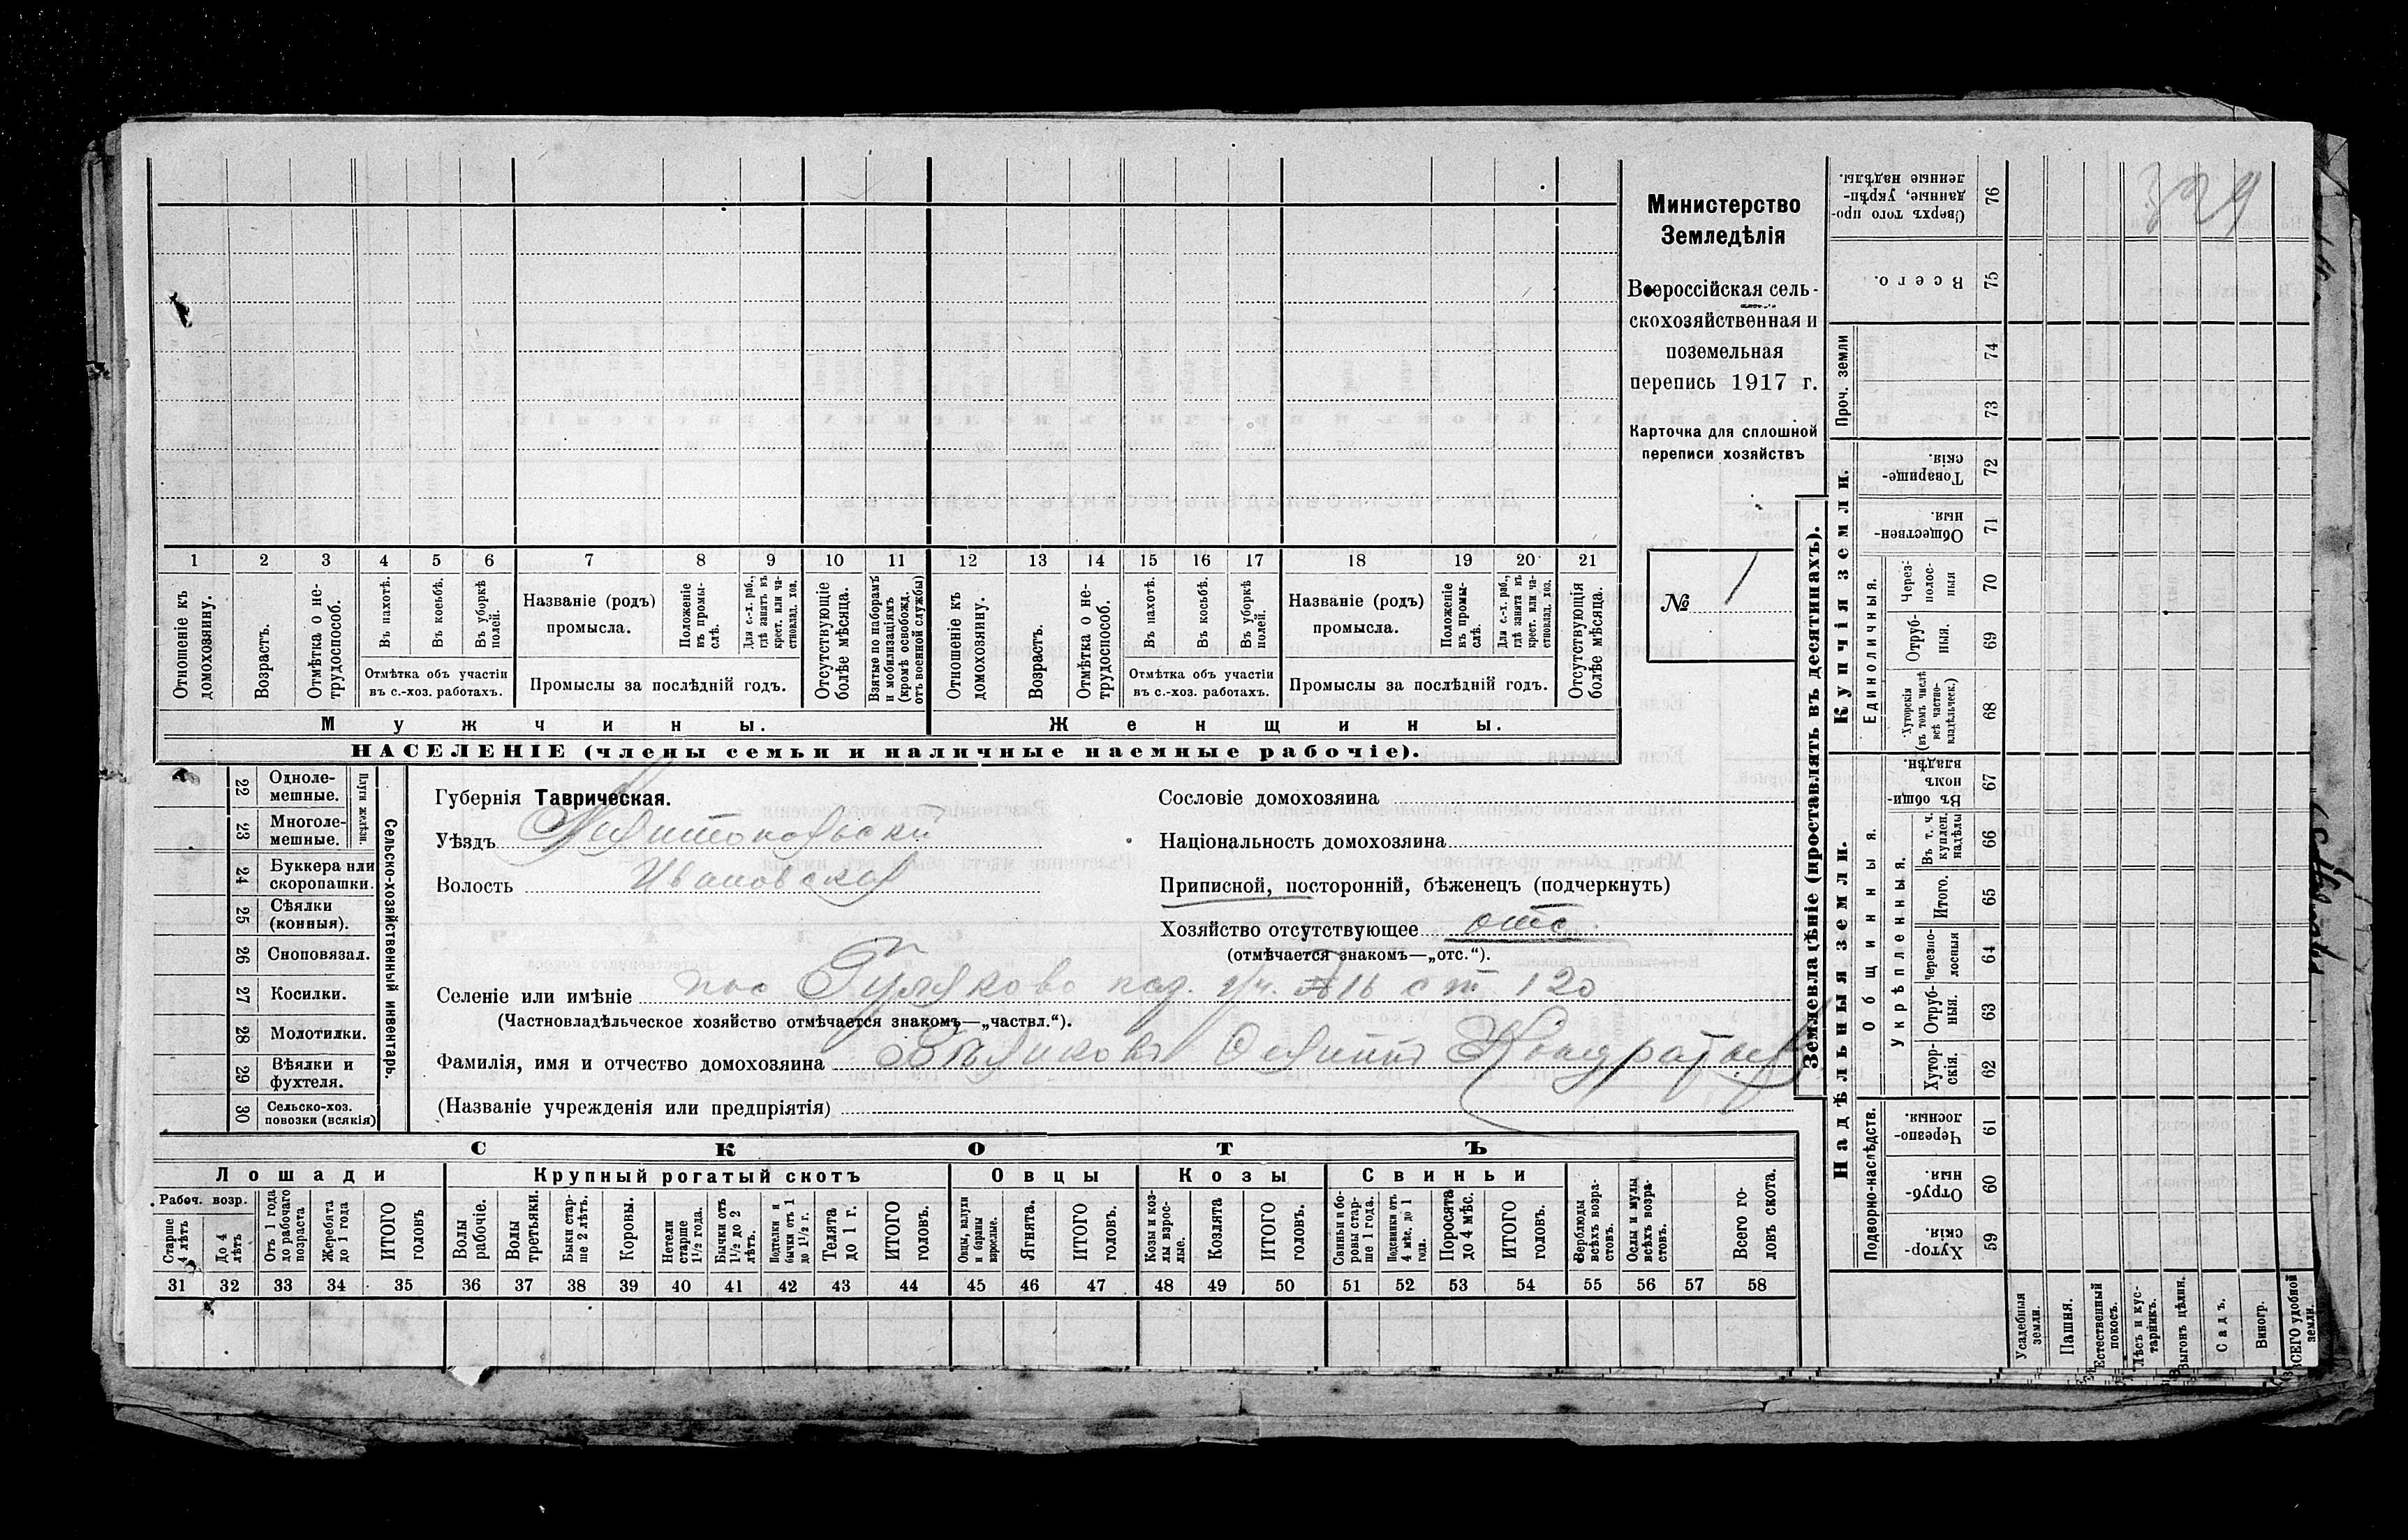 329
Министерство
Земледѣлія
Всероссійская сель-
скохозяйственная и
поземельная
перепись 1917 г.
Карточка для сплошной
переписи хозяйствъ
№ 1
1 2 3 4 5 6 7 8 9 10 11 12 13 14 15 16 17 18 19 20 21
Отношеніе къ домохозяину.
Возрастъ.
Отмѣтка о не-трудоспособ.
Въ пахотѣ.
Въ косьбѣ.
Въ уборкѣ полей.
Отмѣтка объ участіи въ с.-хоз. работахъ.
Названіе (родъ) промысла.
Положеніе въ промы-слѣ.
Для с.-х. раб., гдѣ занятъ въ крест. или ча-стновлад. хоз.
Промыслы за послѣдній годъ.
Отсутствующіе болѣе мѣсяца.
Взятые по наборамъ и мобилизаціямъ (кромѣ освобожд. отъ военной службы)
Отношеніе къ домохозяину.
Возрастъ.
Отмѣтка о не-трудоспособ.
Въ пахотѣ.
Въ косьбѣ.
Въ уборкѣ полей.
Отмѣтка объ участіи въ с.-хоз. работахъ.
Названіе (родъ) промысла.
Положеніе въ промы-слѣ.
Для с.-х. раб., гдѣ занята въ крест. или ча-стновлад. хоз.
Промыслы за послѣдній годъ.
Отсутствующія болѣе мѣсяца.
Мужчины.
Женщины.
НАСЕЛЕНІЕ (члены семьи и наличные наемные рабочіе).
22 Одноле-мешные.
23 Многоле-мешные.
Плуги желѣзн.
24 Буккера или скоропашки.
25 Сѣялки (конныя).
26 Сноповязал.
27 Косилки.
28 Молотилки.
29 Вѣялки и фухтеля.
30 Сельско-хоз. повозки (всякія)
Сельско-хозяйственный инвентарь.
Губернія Таврическая.
Уѣздъ Мелитопольскій
Волость Ивановская
Сословіе домохозяина
Національность домохозяина
Приписной, посторонній, бѣженецъ (подчеркнуть)
Хозяйство отсутствующее отс.
(отмѣчается знакомъ—„отс.“).
Селеніе или имѣніе пос Гуляково под. уч. №16 ст 120
(Частновладѣльческое хозяйство отмѣчается знакомъ—„частвл.“).
Фамилія, имя и отчество домохозяина Филиппъ
(Названіе учрежденія или предпріятія)
СКОТЪ
Лошади
Крупный рогатый скотъ
Овцы
Козы
Свиньи
Рабоч. возр.
Старше 4 лѣтъ
До 4 лѣтъ
Отъ 1 года до рабочаго возраста
Жеребята до 1 года
ИТОГО головъ
Волы рабочіе.
Волы третьяки.
Быки стар-ше 2 лѣтъ.
Коровы.
Нетели старше 1½ года.
Бычки отъ 1½ до 2 лѣтъ.
Подтелки и бычки отъ 1 до 1½ г.
Телята до 1 г.
ИТОГО головъ.
Овцы, валухи и бараны взрослые.
Ягнята.
ИТОГО головъ.
Козы и коз-лы взрос-лые.
Козлята
ИТОГО головъ.
Свиньи и бо-ровы стар-ше 1 года.
Подсвинки отъ 4 мѣс. до 1 года.
Поросята до 4 мѣс.
ИТОГО головъ.
Верблюды всѣхъ возра-стовъ.
Ослы и мулы всѣхъ возра-стовъ.
Всего го-ловъ скота.
31 32 33 34 35 36 37 38 39 40 41 42 43 44 45 46 47 48 49 50 51 52 53 54 55 56 57 58
Землевладѣніе (проставлять въ десятинахъ).
Купчія земли.
Надѣльныя земли.
Сверхъ того про-данные, укрѣп-ленные надѣлы. 76
Всего. 75
Проч. земли
74
73
Товарище-скія. 72
Обществен-ныя. 71
Единоличныя.
Через-полос-ныя 70
Отруб-ныя. 69
Хуторскія (въ томъ числѣ всѣ частно-владѣльческ.) 68
Общинныя.
Въ общин-номъ владѣн. 67
Укрѣпленныя.
Въ т. ч. куплен. надѣлы 66
Итого. 65
черезпо-лосныя 64
Отруб-ныя. 63
Хутор-скія. 62
Подворно-наслѣдств.
Черезпо-лосныя. 61
Отруб-ныя. 60
Хутор-скія. 59
Усадебныя земли.
Пашня.
Естественный покосъ.
Лѣсъ и кус-тарникъ.
Выгонъ цѣлин.
Садъ.
Виногр.
ВСЕГО удобной земли.